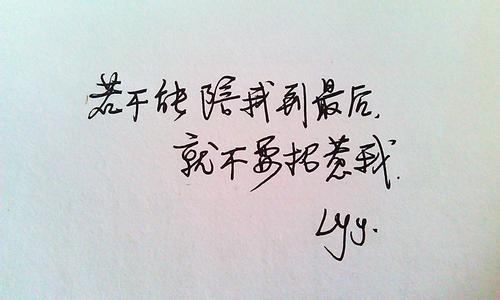 若不能陪我到最后,
就不要招惹我.
Lyy.